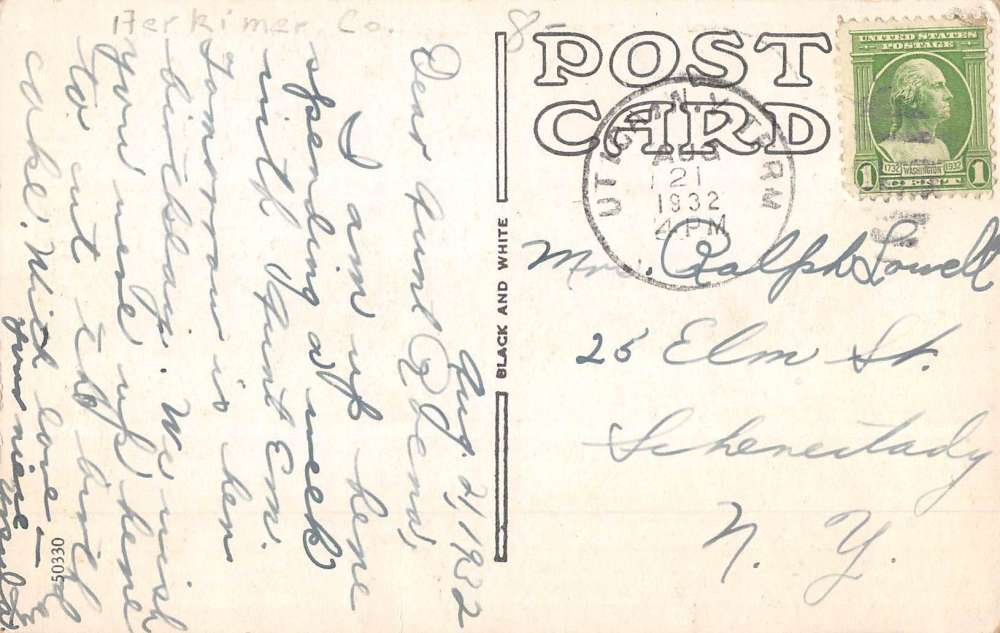 Herkimer Co.
8
POST
CARD
UNITED STATES
POSTAGE
1732 WASHINGTON 1932
1 CENT 1
AUG
21
1932
4 PM
BLACK AND WHITE
50330
Mrs. Ralph Lowell
25 Elm St.
Schenectady
N. Y.
Aug 21, 1932
Dear Aunt
I am up here
spending a week
with Aunt Em.
Tomorrow is her
birthday. We wish
you were up here
to cut the birthday
cake. With love —
your niece